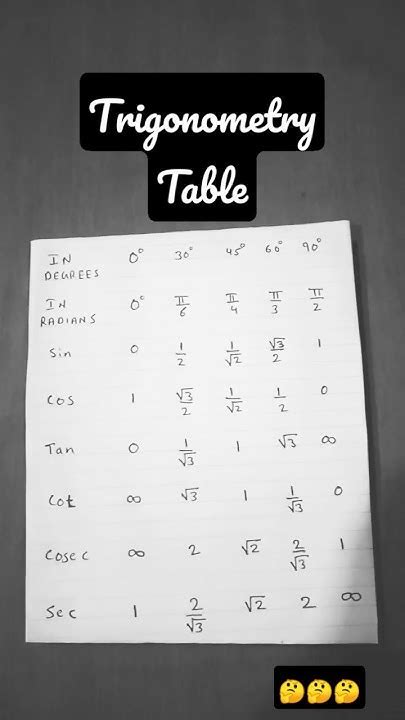 Trigonometry
Table
IN DEGREES 0° 30° 45° 60° 90°
IN RADIANS 0° π/6 π/4 π/3 π/2
Sin 0 1/2 1/√2 √3/2 1
Cos 1 √3/2 1/√2 1/2 0
Tan 0 1/√3 1 √3 ∞
Cot ∞ √3 1 1/√3 0
Cosec ∞ 2 √2 2/√3 1
Sec 1 2/√3 √2 2 ∞
🤔🤔🤔